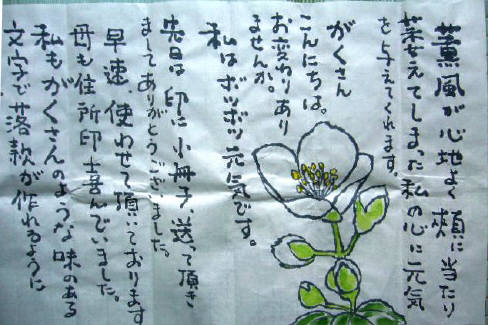 薫風が心地よく頬に当たり
萎えてしまった私の心に元気
を与えてくれます。
がくさん
こんにちは。
お変わりあり
ませんか。
私はボツボツ元気です。
先日は印に小冊子、送って頂き
ましてありがとうございました。
早速使わせて頂いております
母も住所印土喜んでいました。
私もがくさんのような味のある
文字で落款が作れるように